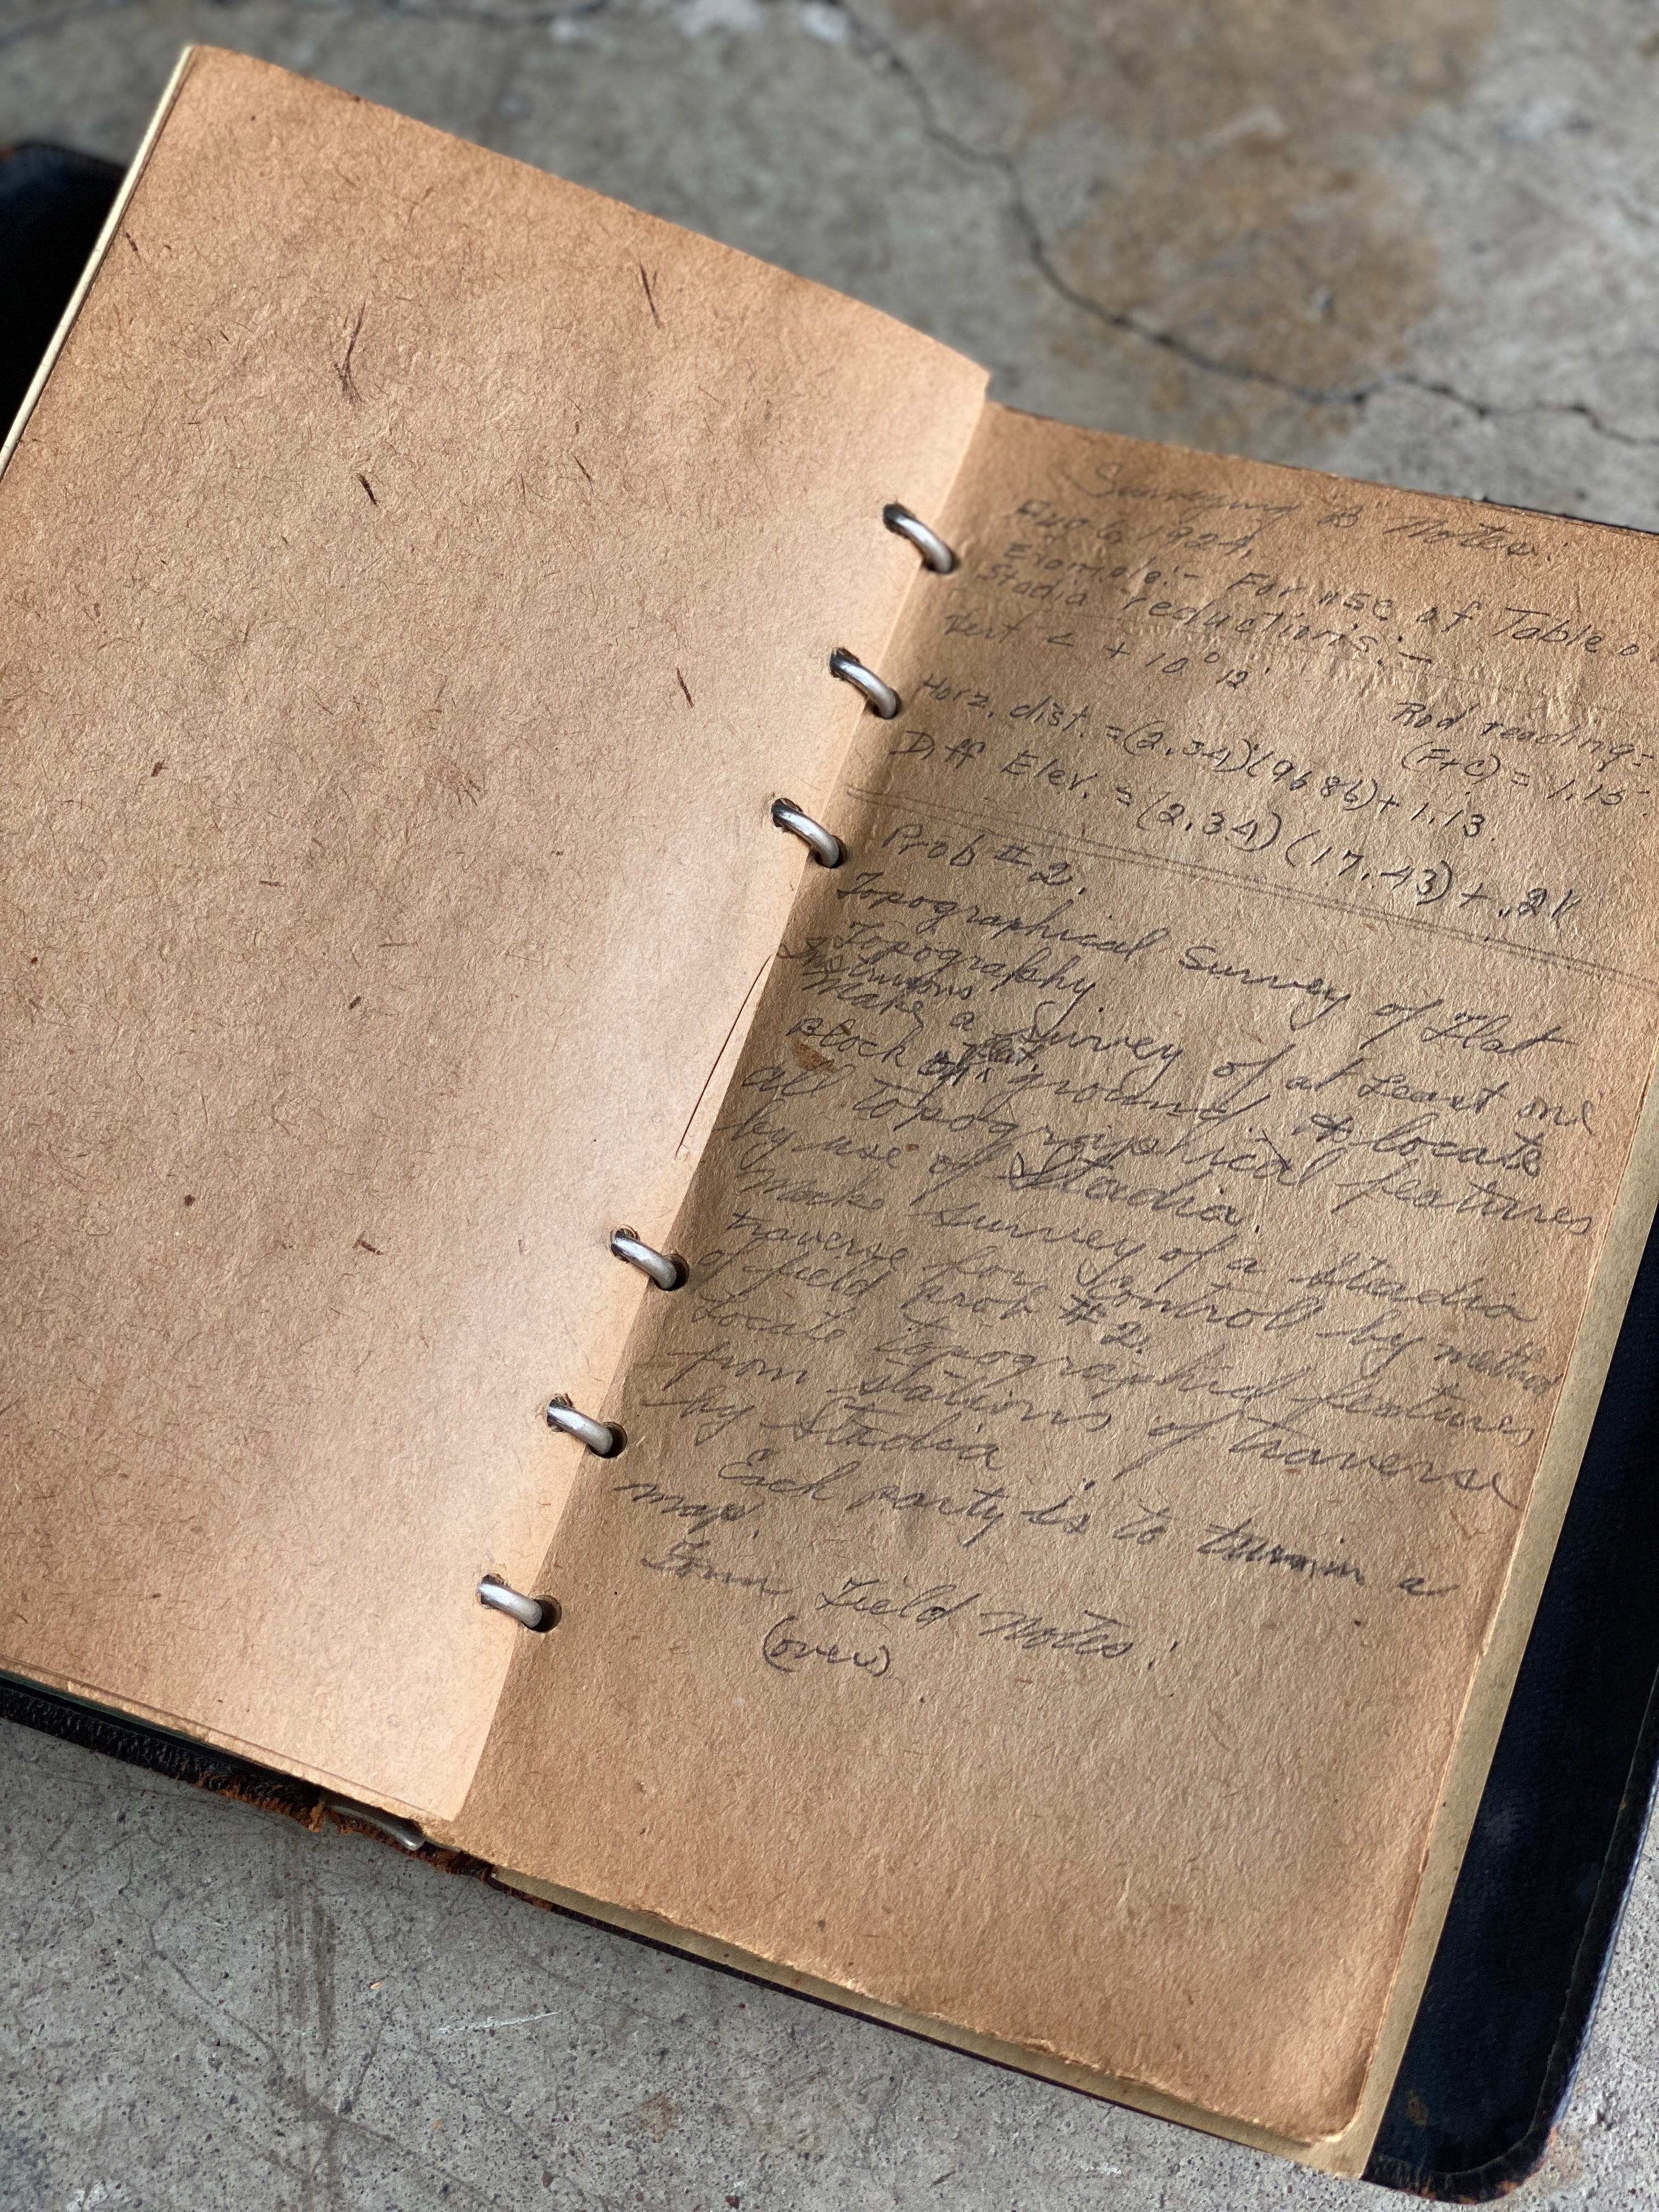 Surveying "B" Notes:
Aug 6, 1924,
Example:- For use of Table on
Stadia reductions:-
Vert < + 10° 12'
Rod reading =
(F+C) = 1.15
Horz. dist. = (2.34)(96.86) + 1.13.
Diff Elev. = (2.34) (17.43) + .21
Prob # 2.
Topographical Survey of Flat
Topography.
Make a Survey of at Least one
Block of flat ground. & locate
all topographical features
by use of Stadia.
Make survey of a Stadia
traverse for control by method
of field prob #2.
Locate topographical features
from stations of traverse
by Stadia
Each party is to turn in a
map.
Form Field Notes:
(over)